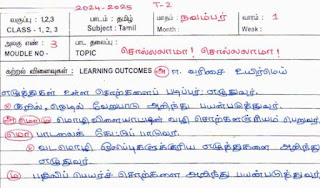 2024-2025 T-2
வகுப்பு : 1,2,3 பாடம் : தமிழ் மாதம் : நவம்பர் வாரம் : 1
CLASS - 1, 2, 3 Subject : Tamil Month : Week :
அலகு எண் : 3 பாட தலைப்பு :
MOUDLE NO - TOPIC சொல்லலாமா! சொல்லலாமா!
கற்றல் விளைவுகள் : LEARNING OUTCOMES எ வரிசை உயிர்மெய்
எழுத்துகள் உள்ள சொற்களைப் படிப்பர்; எழுதுவர்.
குறில், நெடில் வேறுபாடு அறிந்து பயன்படுத்துவர்.
மொழி விளையாட்டின் வழி சொற்களஞ்சியம் பெறுவர்.
பாடலைக் கேட்டுப் பாடுவர்.
வடமொழி ஒலிப்புகளுக்குரிய எழுத்துகளை அறிந்து
எழுதுவர்.
பதிலிப் பெயர்ச் சொற்களை அறிந்து பயன்படுத்துவர்.